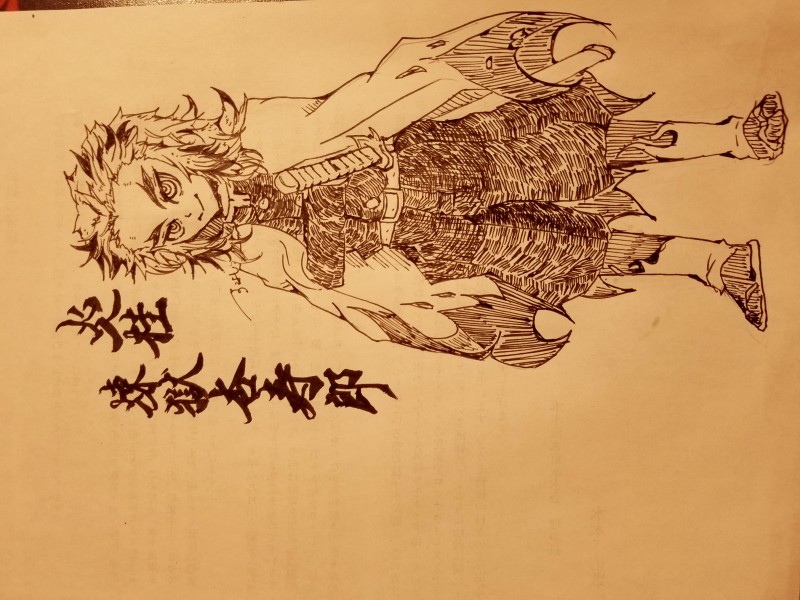 炎柱
煉獄杏寿郎